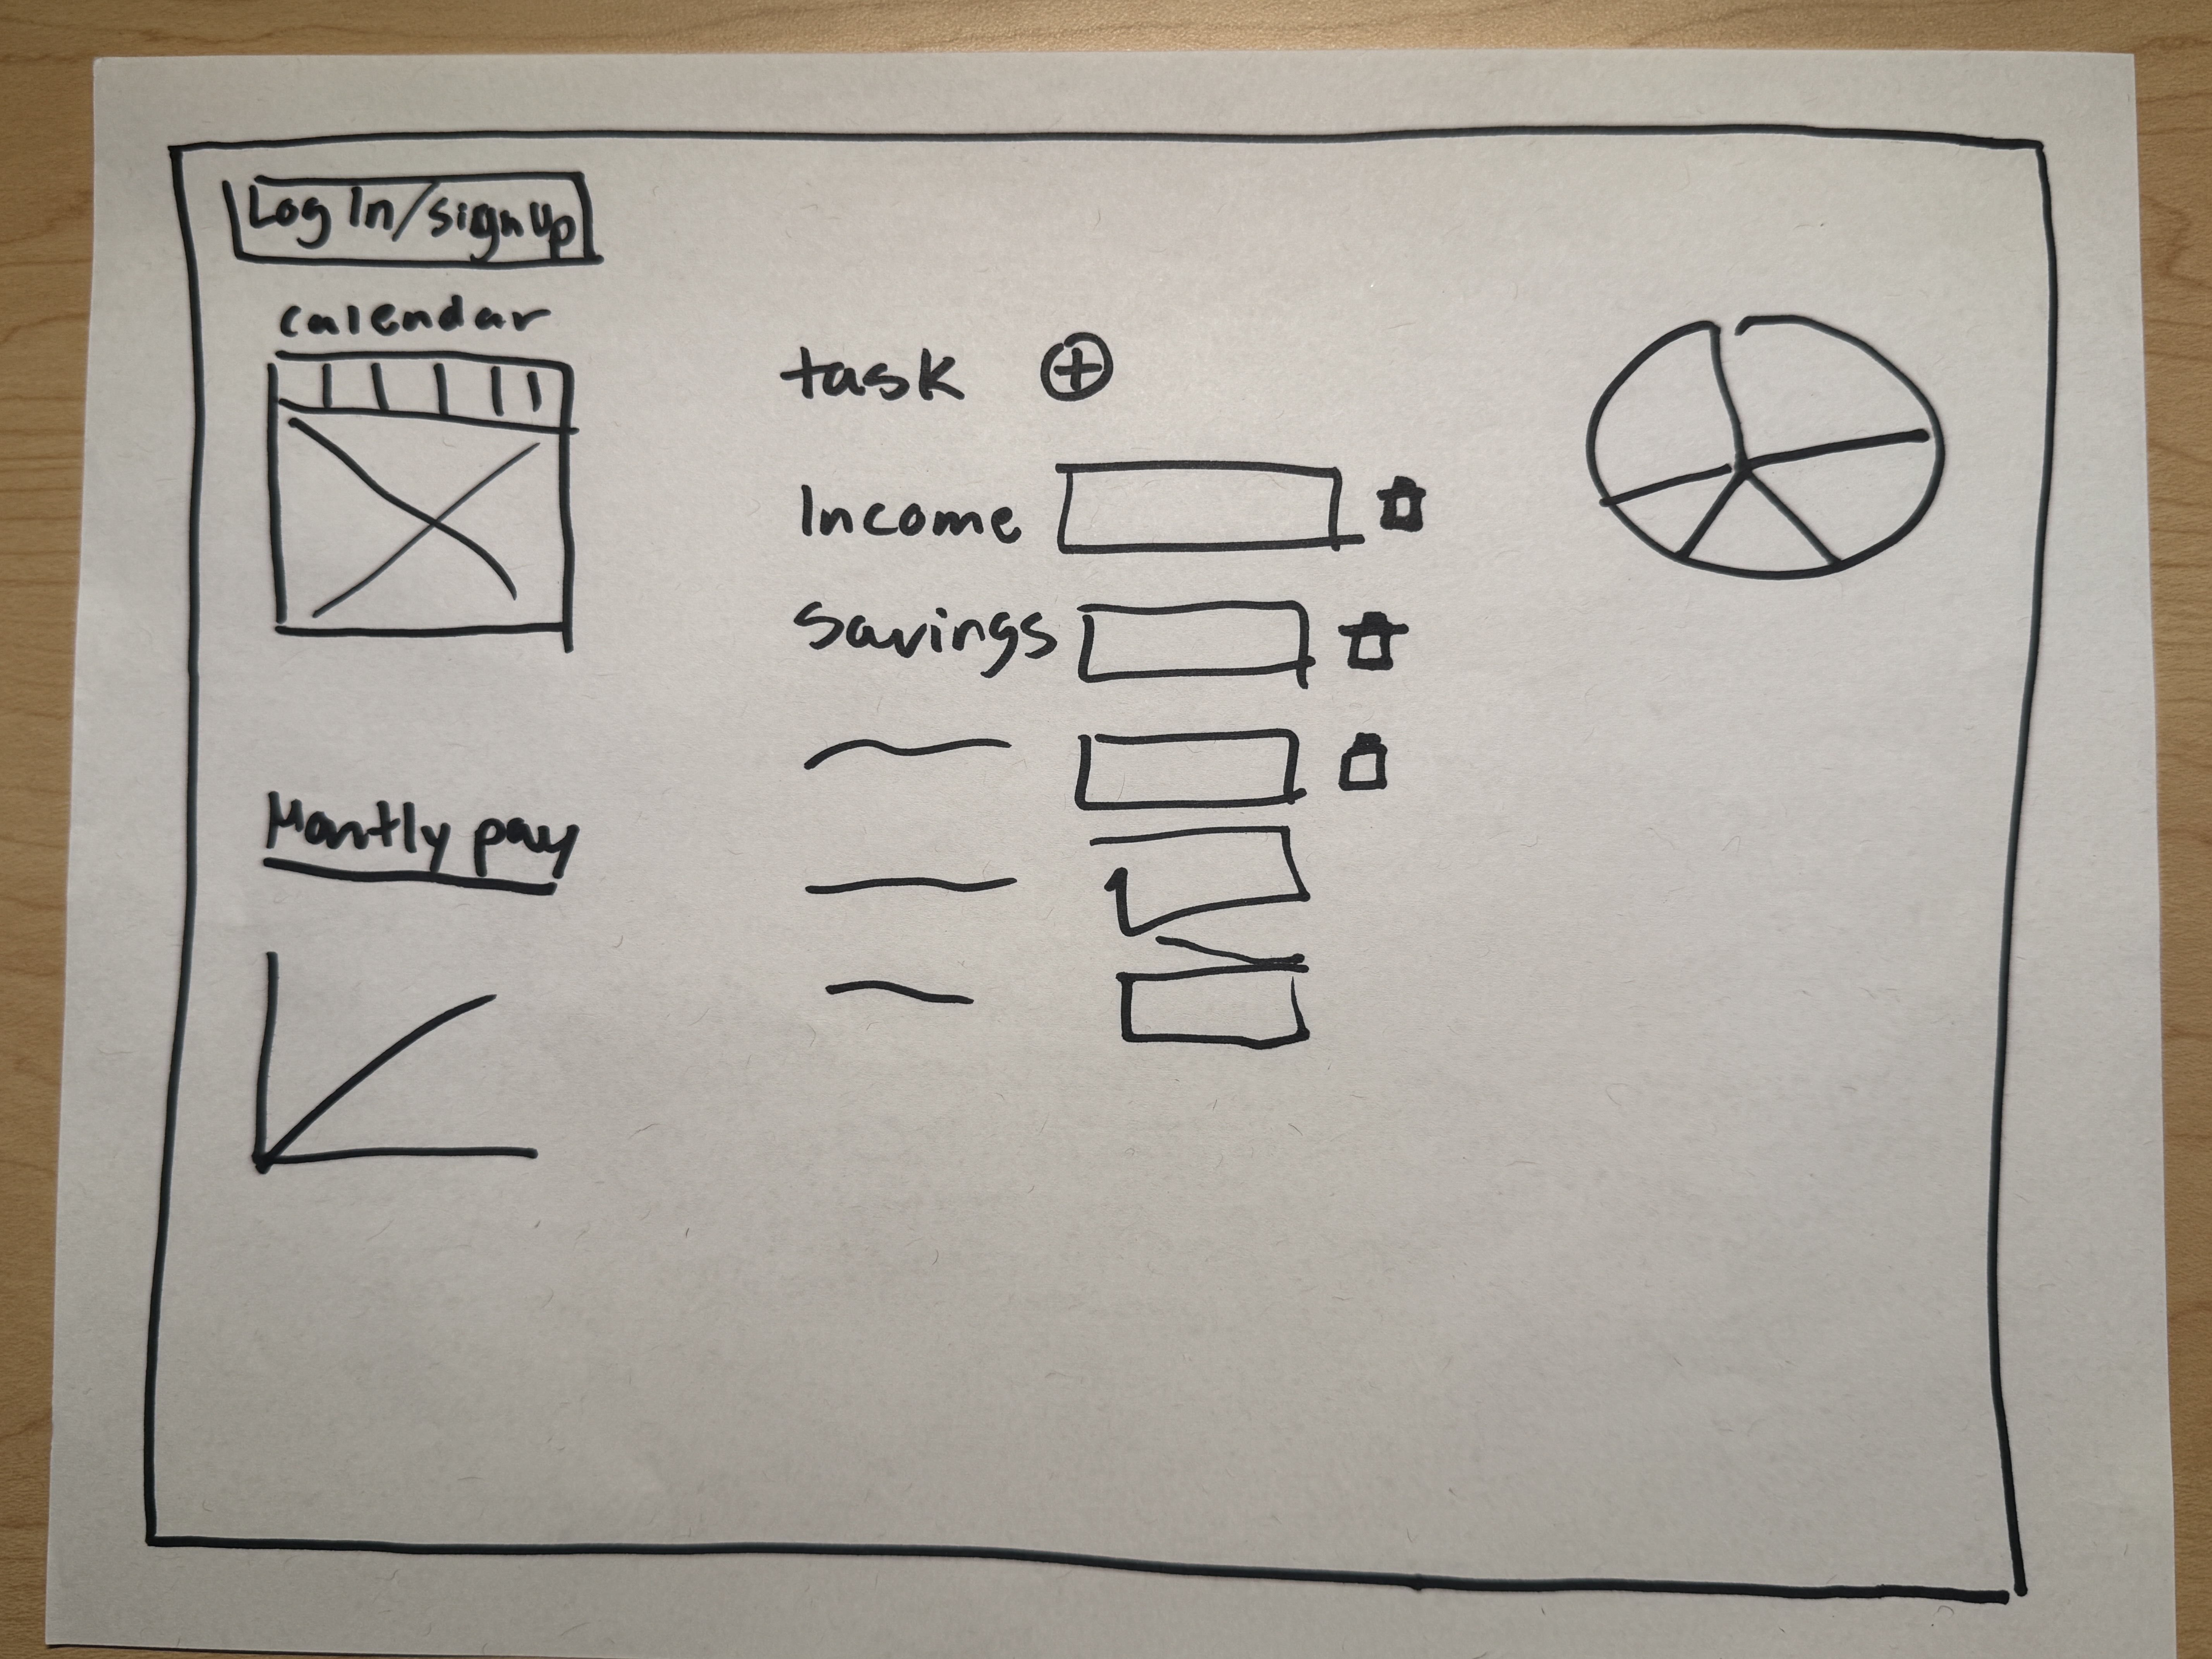 Log In/sign Up
calendar
task
Income
Savings
Montly pay